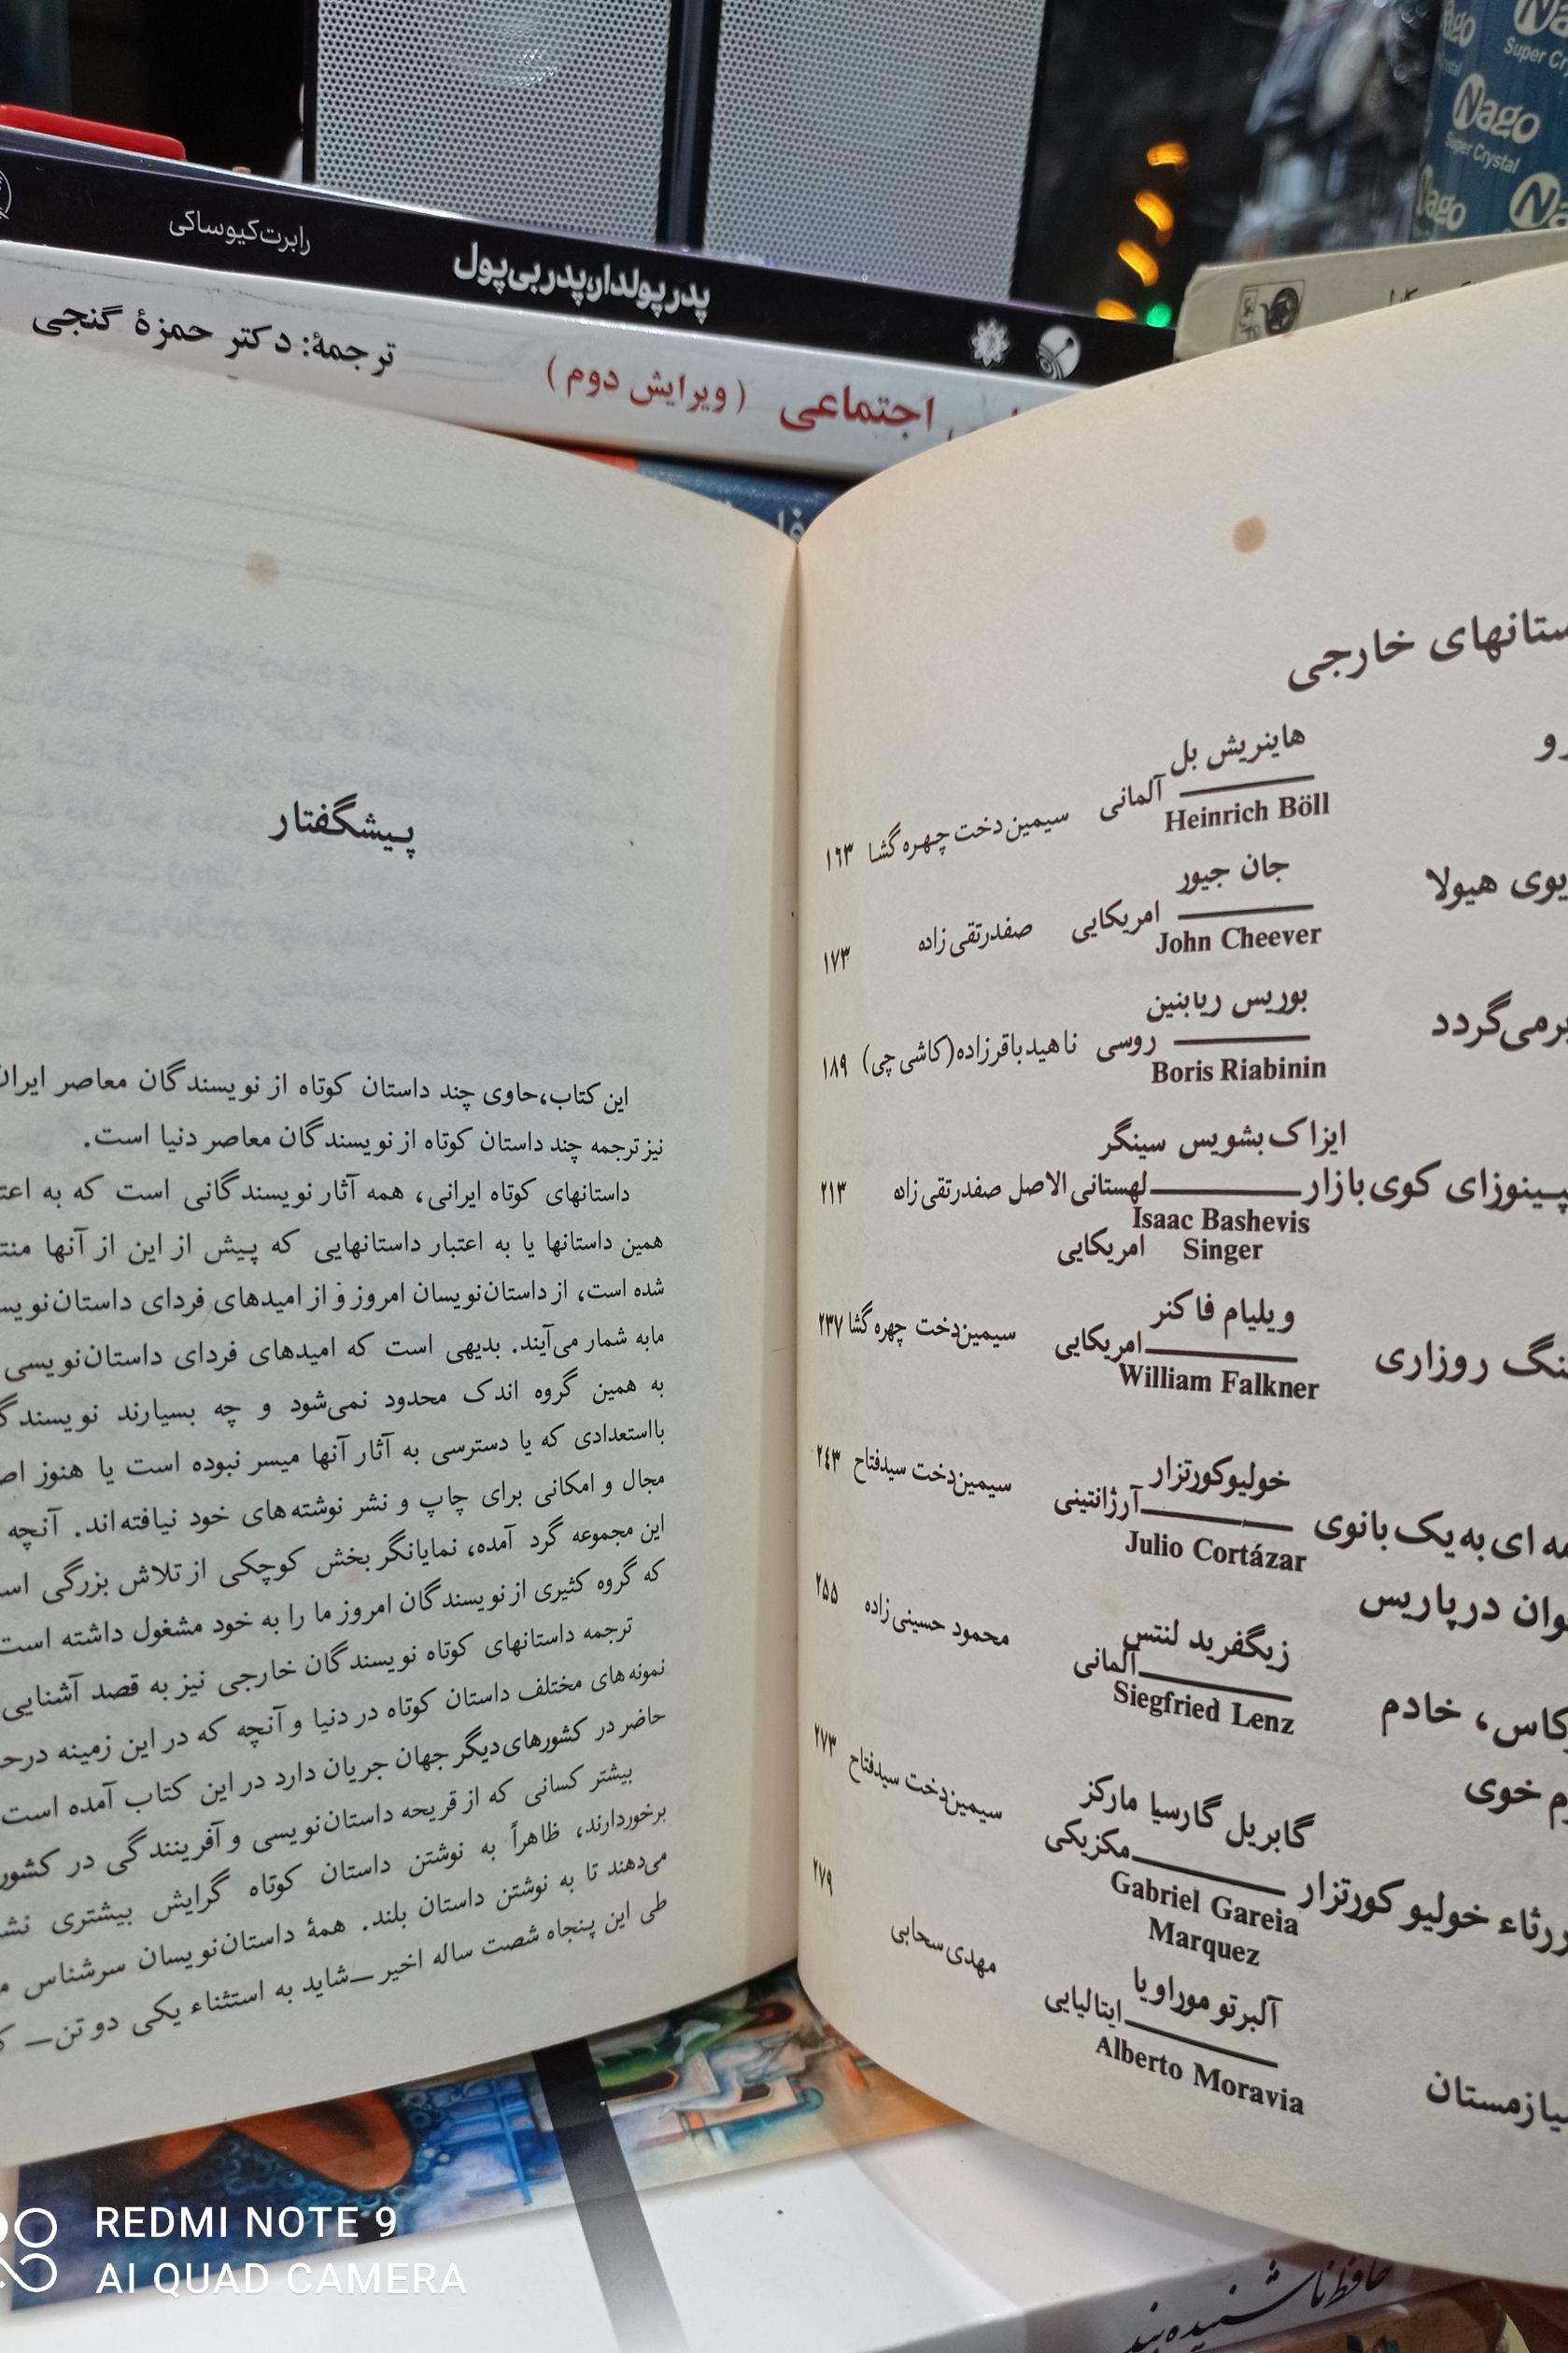 Nago
Super Crystal
Nago
رابرت کیوساکی
پدر پولدار، پدر بی‌پول
ترجمهٔ: دکتر حمزهٔ گنجی
(ویرایش دوم)
اجتماعی
خارجی
هاینریش بل
آلمانی
سیمین دخت چهره گشا
۱۶۳
Heinrich Böll
هیولا
جان جیور
امریکایی
صفدر تقی زاده
۱۷۳
John Cheever
برمی‌گردد
بوریس ریابنین
روسی
ناهید باقرزاده (کاشی چی)
۱۸۹
Boris Riabinin
ایزاک بشویس سینگر
کوی بازار
لهستانی الاصل
صفدر تقی زاده
۲۱۳
Isaac Bashevis
Singer
امریکایی
ویلیام فاکنر
روزاری
امریکایی
سیمین‌دخت چهره گشا
۲۳۷
William Falkner
خولیو کورتزار
ای به یک بانوی
آرژانتینی
سیمین‌دخت سیدفتاح
۲۴۳
Julio Cortázar
در پاریس
زیگفرید لنتس
آلمانی
محمود حسینی زاده
۲۵۵
Siegfried Lenz
خادم
خوی
گابریل گارسیا مارکز
خولیو کورتزار
مکزیکی
سیمین‌دخت سیدفتاح
۲۷۳
Gabriel Gareia
Marquez
آلبرتو موراویا
ایتالیایی
مهدی سحابی
۲۷۹
Alberto Moravia
پیشگفتار
این کتاب، حاوی چند داستان کوتاه از نویسندگان معاصر ایران
نیز ترجمه چند داستان کوتاه از نویسندگان معاصر دنیا است.
داستانهای کوتاه ایرانی، همه آثار نویسندگانی است که به
همین داستانها یا به اعتبار داستانهایی که پیش از این از آنها
شده است، از داستان‌نویسان امروز و از امیدهای فردای
مابه شمار می‌آیند. بدیهی است که امیدهای فردای داستان‌نویسی
به همین گروه اندک محدود نمی‌شود و چه بسیارند
بااستعدادی که یا دسترسی به آثار آنها میسر نبوده است یا هنوز
مجال و امکانی برای چاپ و نشر نوشته‌های خود نیافته‌اند. آنچه
این مجموعه گرد آمده، نمایانگر بخش کوچکی از تلاش بزرگی
که گروه کثیری از نویسندگان امروز ما را به خود مشغول داشته است
ترجمه داستانهای کوتاه نویسندگان خارجی نیز به قصد آشنایی
نمونه های مختلف داستان کوتاه در دنیا و آنچه که در این زمینه
حاضر در کشورهای دیگر جهان جریان دارد در این کتاب آمده است
بیشتر کسانی که از قریحه داستان‌نویسی و آفرینندگی در
برخوردارند، ظاهراً به نوشتن داستان کوتاه گرایش بیشتری
می‌دهند تا به نوشتن داستان بلند. همهٔ داستان‌نویسان سرشناس
طی این پنجاه شصت ساله اخیر —شاید به استثناء یکی دو تن—
REDMI NOTE 9
AI QUAD CAMERA